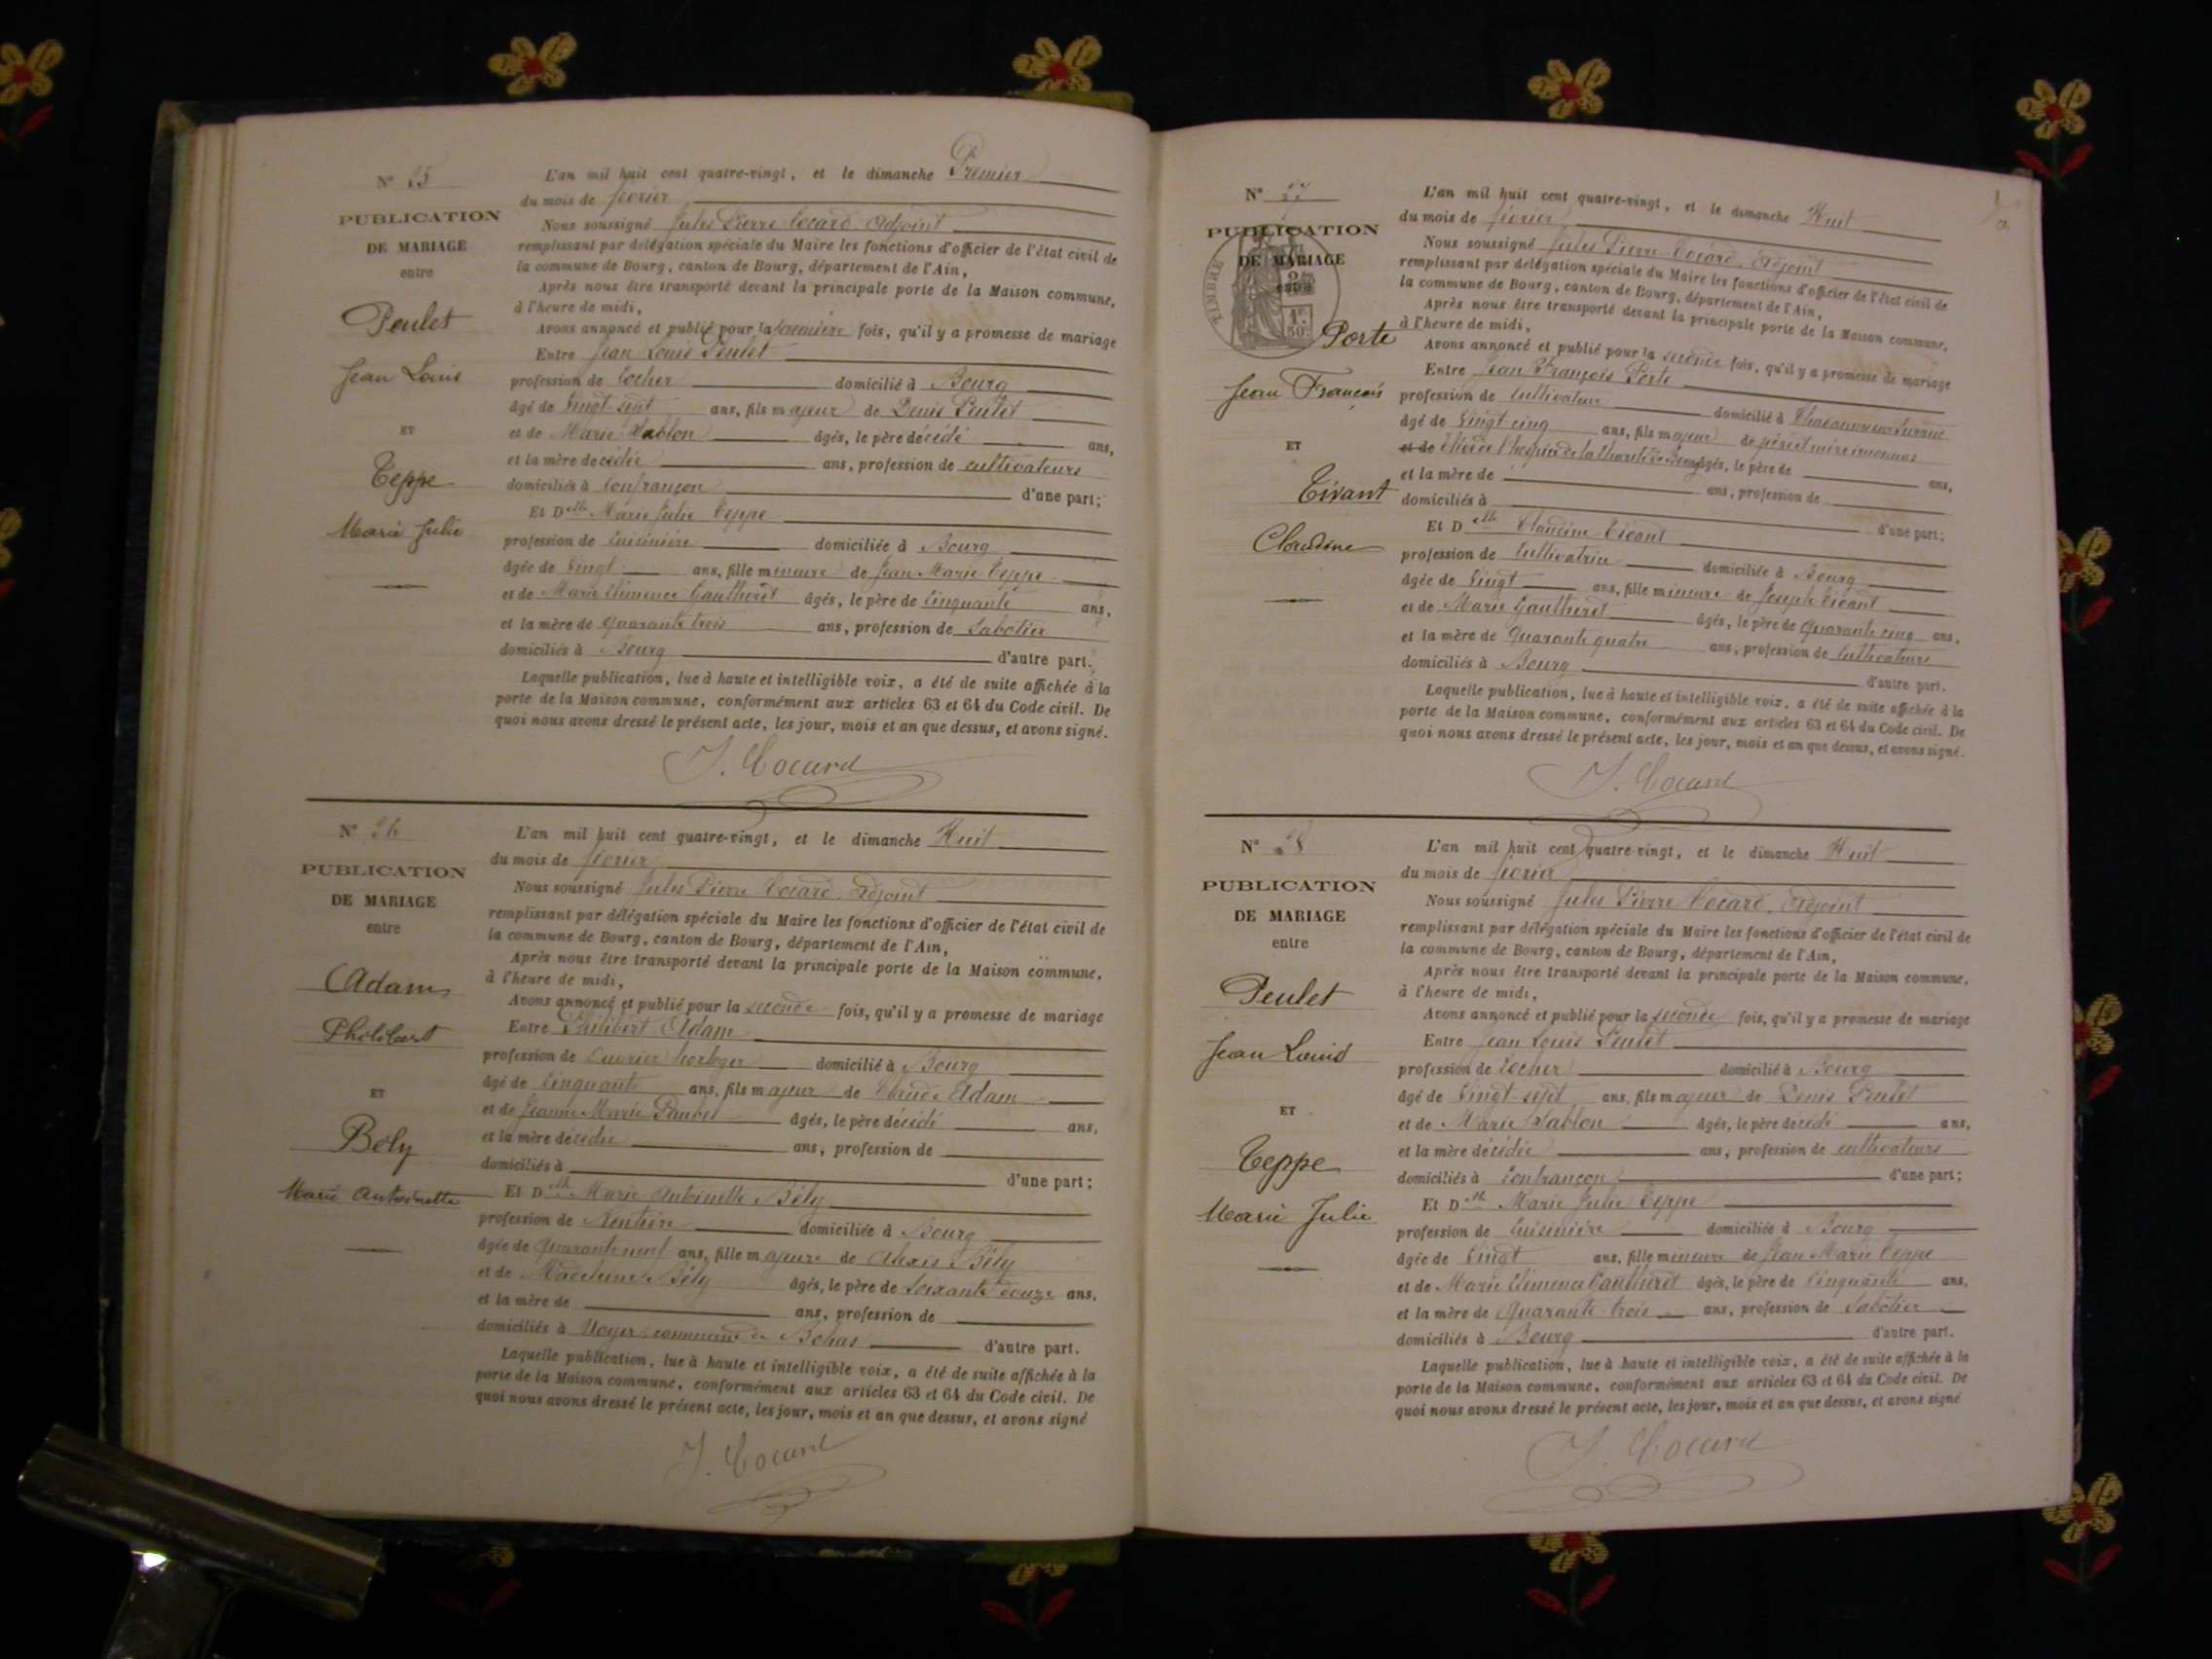 N° 25
PUBLICATION
DE MARIAGE
entre
Peulet
Jean Louis
ET
Teppe
Marie Julie
L'an mil huit cent quatre-vingt, et le dimanche Premier
du mois de février
Nous soussigné Jules Pierre Cocard Adjoint
remplissant par délégation spéciale du Maire les fonctions d'officier de l'état civil de
la commune de Bourg, canton de Bourg, département de l'Ain,
Après nous être transporté devant la principale porte de la Maison commune,
à l'heure de midi,
Avons annoncé et publié pour la première fois, qu'il y a promesse de mariage
Entre Jean Louis Peulet
profession de Cocher domicilié à Bourg
âgé de Vingt-sept ans, fils majeur de Denis Peulet
et de Marie Sablon âgés, le père décédé ans,
et la mère décédée ans, profession de cultivateurs
domiciliés à Confrançon d'une part;
Et Delle Marie Julie Teppe
profession de Cuisinière domiciliée à Bourg
âgée de Vingt ans, fille mineure de Jean Marie Teppe
et de Marie Clémence Gautheret âgés, le père de Cinquante ans,
et la mère de Quarante trois ans, profession de Sabotier
domiciliés à Bourg d'autre part.
Laquelle publication, lue à haute et intelligible voix, a été de suite affichée à la
porte de la Maison commune, conformément aux articles 63 et 64 du Code civil. De
quoi nous avons dressé le présent acte, les jour, mois et an que dessus, et avons signé.
J. Cocard
N° 26
PUBLICATION
DE MARIAGE
entre
Adam
Philibert
ET
Bély
Marie Antoinette
L'an mil huit cent quatre-vingt, et le dimanche Huit
du mois de février
Nous soussigné Jules Pierre Cocard, Adjoint
remplissant par délégation spéciale du Maire les fonctions d'officier de l'état civil de
la commune de Bourg, canton de Bourg, département de l'Ain,
Après nous être transporté devant la principale porte de la Maison commune,
à l'heure de midi,
Avons annoncé et publié pour la seconde fois, qu'il y a promesse de mariage
Entre Philibert Adam
profession de Ouvrier horloger domicilié à Bourg
âgé de Cinquante ans, fils majeur de Claude Adam
et de Jeanne Marie âgés, le père décédé ans,
et la mère décédée ans, profession de
domiciliés à d'une part;
Et Delle Marie Antoinette Bély
profession de Rentière domiciliée à Bourg
âgée de Quarante neuf ans, fille majeure de Alexis Bély
et de Bély âgés, le père de Soixante douze ans,
et la mère de ans, profession de
domiciliés à commune de Bohas d'autre part.
Laquelle publication, lue à haute et intelligible voix, a été de suite affichée à la
porte de la Maison commune, conformément aux articles 63 et 64 du Code civil. De
quoi nous avons dressé le présent acte, les jour, mois et an que dessus, et avons signé
J. Cocard
N° 27
PUBLICATION
DE MARIAGE
entre
TIMBRE
Porte
Jean François
ET
Tivant
Claudine
L'an mil huit cent quatre-vingt, et le dimanche Huit
du mois de février
Nous soussigné Jules Pierre Cocard, Adjoint
remplissant par délégation spéciale du Maire les fonctions d'officier de l'état civil de
la commune de Bourg, canton de Bourg, département de l'Ain,
Après nous être transporté devant la principale porte de la Maison commune,
à l'heure de midi,
Avons annoncé et publié pour la seconde fois, qu'il y a promesse de mariage
Entre Jean François Porte
profession de Cultivateur domicilié à
âgé de Vingt cinq ans, fils majeur de père et mère inconnus
et de l'hospice de la Charité âgés, le père de ans,
et la mère de ans, profession de
domiciliés à d'une part;
Et Delle Claudine Tivant
profession de Cultivatrice domiciliée à Bourg
âgée de Vingt ans, fille mineure de Joseph Tivant
et de Marie Gautheret âgés, le père de Quarante cinq ans,
et la mère de Quarante quatre ans, profession de Cultivateurs
domiciliés à Bourg d'autre part.
Laquelle publication, lue à haute et intelligible voix, a été de suite affichée à la
porte de la Maison commune, conformément aux articles 63 et 64 du Code civil. De
quoi nous avons dressé le présent acte, les jour, mois et an que dessus, et avons signé.
J. Cocard
N° 28
PUBLICATION
DE MARIAGE
entre
Peulet
Jean Louis
ET
Teppe
Marie Julie
L'an mil huit cent quatre-vingt, et le dimanche Huit
du mois de février
Nous soussigné Jules Pierre Cocard, Adjoint
remplissant par délégation spéciale du Maire les fonctions d'officier de l'état civil de
la commune de Bourg, canton de Bourg, département de l'Ain,
Après nous être transporté devant la principale porte de la Maison commune,
à l'heure de midi,
Avons annoncé et publié pour la seconde fois, qu'il y a promesse de mariage
Entre Jean Louis Peulet
profession de Cocher domicilié à Bourg
âgé de Vingt-sept ans, fils majeur de Denis Peulet
et de Marie Sablon âgés, le père décédé ans,
et la mère décédée ans, profession de cultivateurs
domiciliés à Confrançon d'une part;
Et Delle Marie Julie Teppe
profession de Cuisinière domiciliée à Bourg
âgée de Vingt ans, fille mineure de Jean Marie Teppe
et de Marie Clémence Gautheret âgés, le père de Cinquante ans,
et la mère de Quarante-trois ans, profession de Sabotier
domiciliés à Bourg d'autre part.
Laquelle publication, lue à haute et intelligible voix, a été de suite affichée à la
porte de la Maison commune, conformément aux articles 63 et 64 du Code civil. De
quoi nous avons dressé le présent acte, les jour, mois et an que dessus, et avons signé
J. Cocard